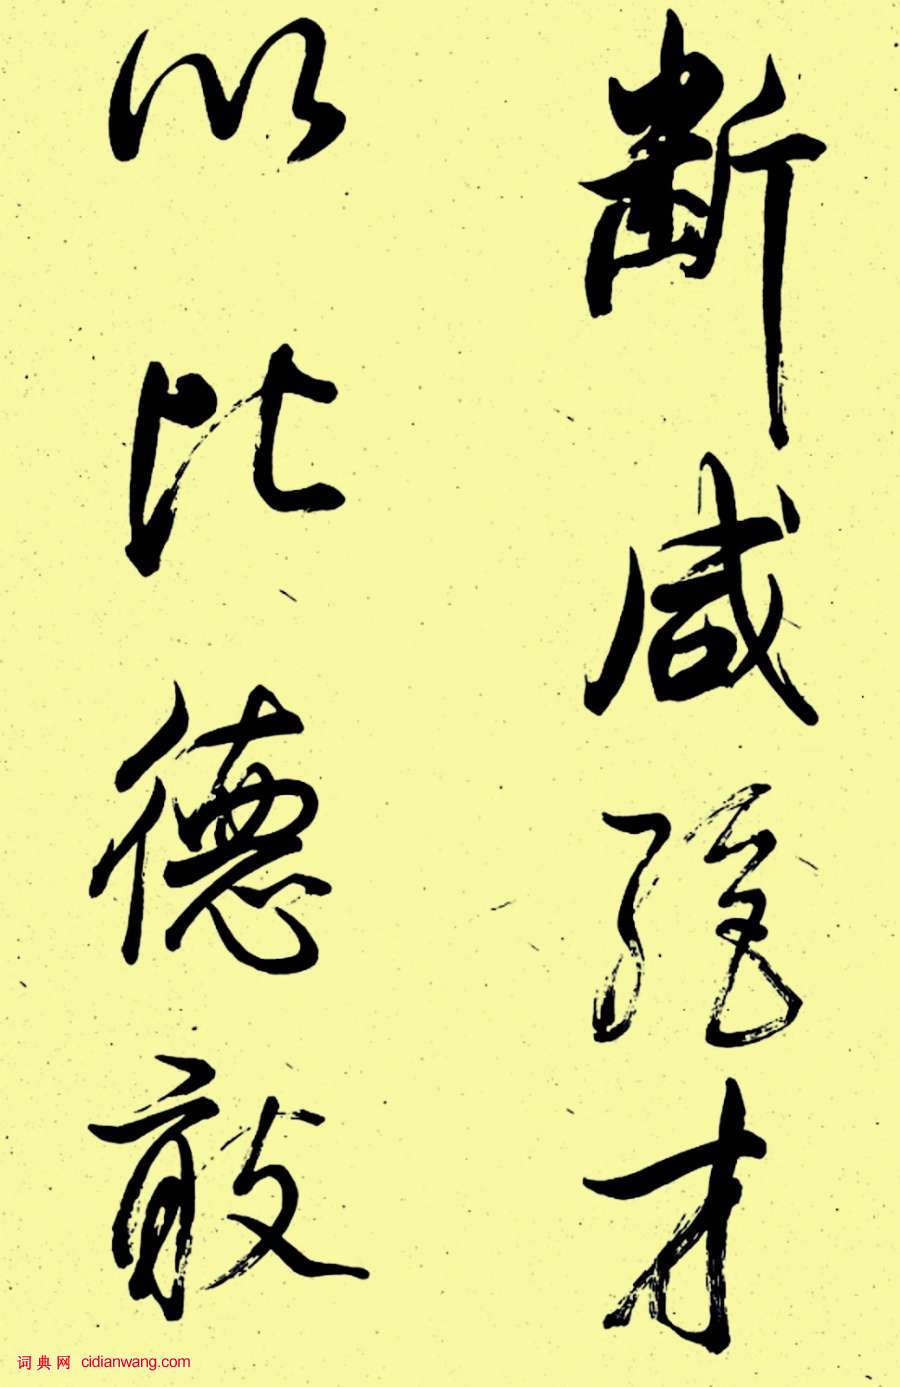 斷咸經才
以比德敢
词典网 cidianwang.com